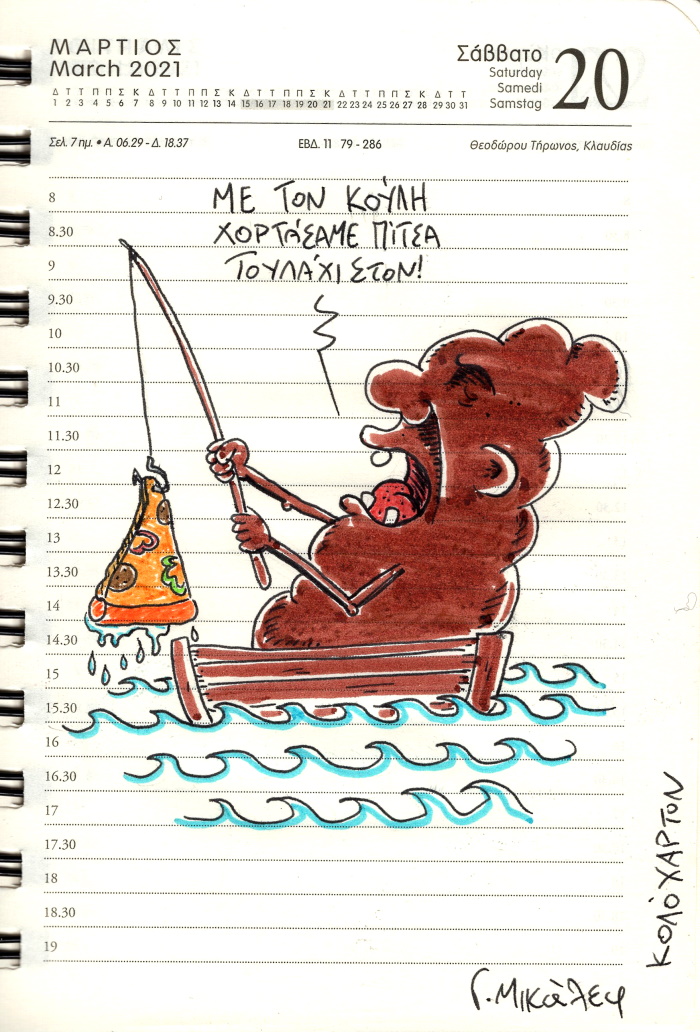 ΜΑΡΤΙΟΣ
March 2021
Δ Τ Τ Π Π Σ Κ Δ Τ Τ Π Π Σ Κ Δ Τ Τ Π Π Σ Κ Δ Τ Τ Π Π Σ Κ Δ Τ Τ
1 2 3 4 5 6 7 8 9 10 11 12 13 14 15 16 17 18 19 20 21 22 23 24 25 26 27 28 29 30 31
Σάββατο
Saturday
Samedi
Samstag
20
Σελ. 7 ημ. • Α. 06.29 - Δ. 18.37
ΕΒΔ. 11 79 - 286
Θεοδώρου Τήρωνος, Κλαυδίας
ΜΕ ΤΟΝ ΚΟΎΛΗ
ΧΟΡΤΆΣΑΜΕ ΠΊΤΣΑ
ΤΟΥΛΆΧΙΣΤΟΝ!
8
8.30
9
9.30
10
10.30
11
11.30
12
12.30
13
13.30
14
14.30
15
15.30
16
16.30
17
17.30
18
18.30
19
ΚΟΛΌΧΑΡΤΟΝ
Γ. Μικάλεφ